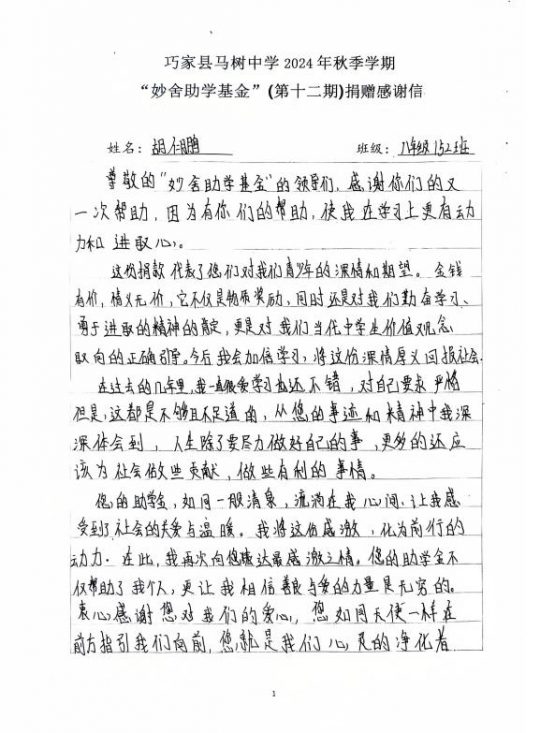 巧家县马树中学 2024 年秋季学期
“妙舍助学基金”(第十二期)捐赠感谢信
姓名: 胡仁鹏 班级: 八年级152班
尊敬的“妙舍助学基金”的领导们，感谢你们的又
一次帮助，因为有你们的帮助，使我在学习上更有动
力和进取心。
这份捐款代表了您们对我们青少年的深情和期望。金钱
有价，情义无价，它不仅是物质奖励，同时还是对我们勤奋学习、
勇于进取的精神的肯定，更是对我们当代中学生价值观念
取向的正确引导。今后我会加倍学习，将这份深情厚义回报社会。
在过去的几年里，我一直很爱学习也还不错，对自己要求严格
但是，这都是不够且不足道的，从您的事迹和精神中我深
深体会到，人生除了要尽力做好自己的事，更多的还应
该为社会做些贡献，做些有利的事情。
您的助学金，如同一股清泉，流淌在我心间，让我感
受到了社会的关爱与温暖。我将这份感激，化为前行的
动力。在此，我再次向您表达最感激之情。您的助学金不
仅帮助了我个人，更让我相信善良与爱的力量是无穷的。
衷心感谢您对我们的爱心，您如同天使一样在
前方指引我们向前，您就是我们心灵的净化者
1